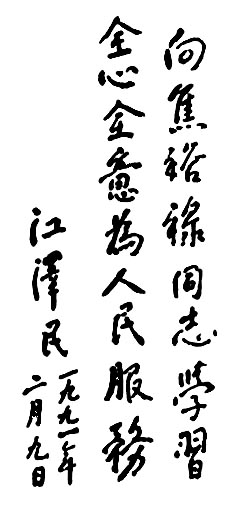 向焦裕禄同志學習
全心全意為人民服務
江澤民
一九九一年
二月九日